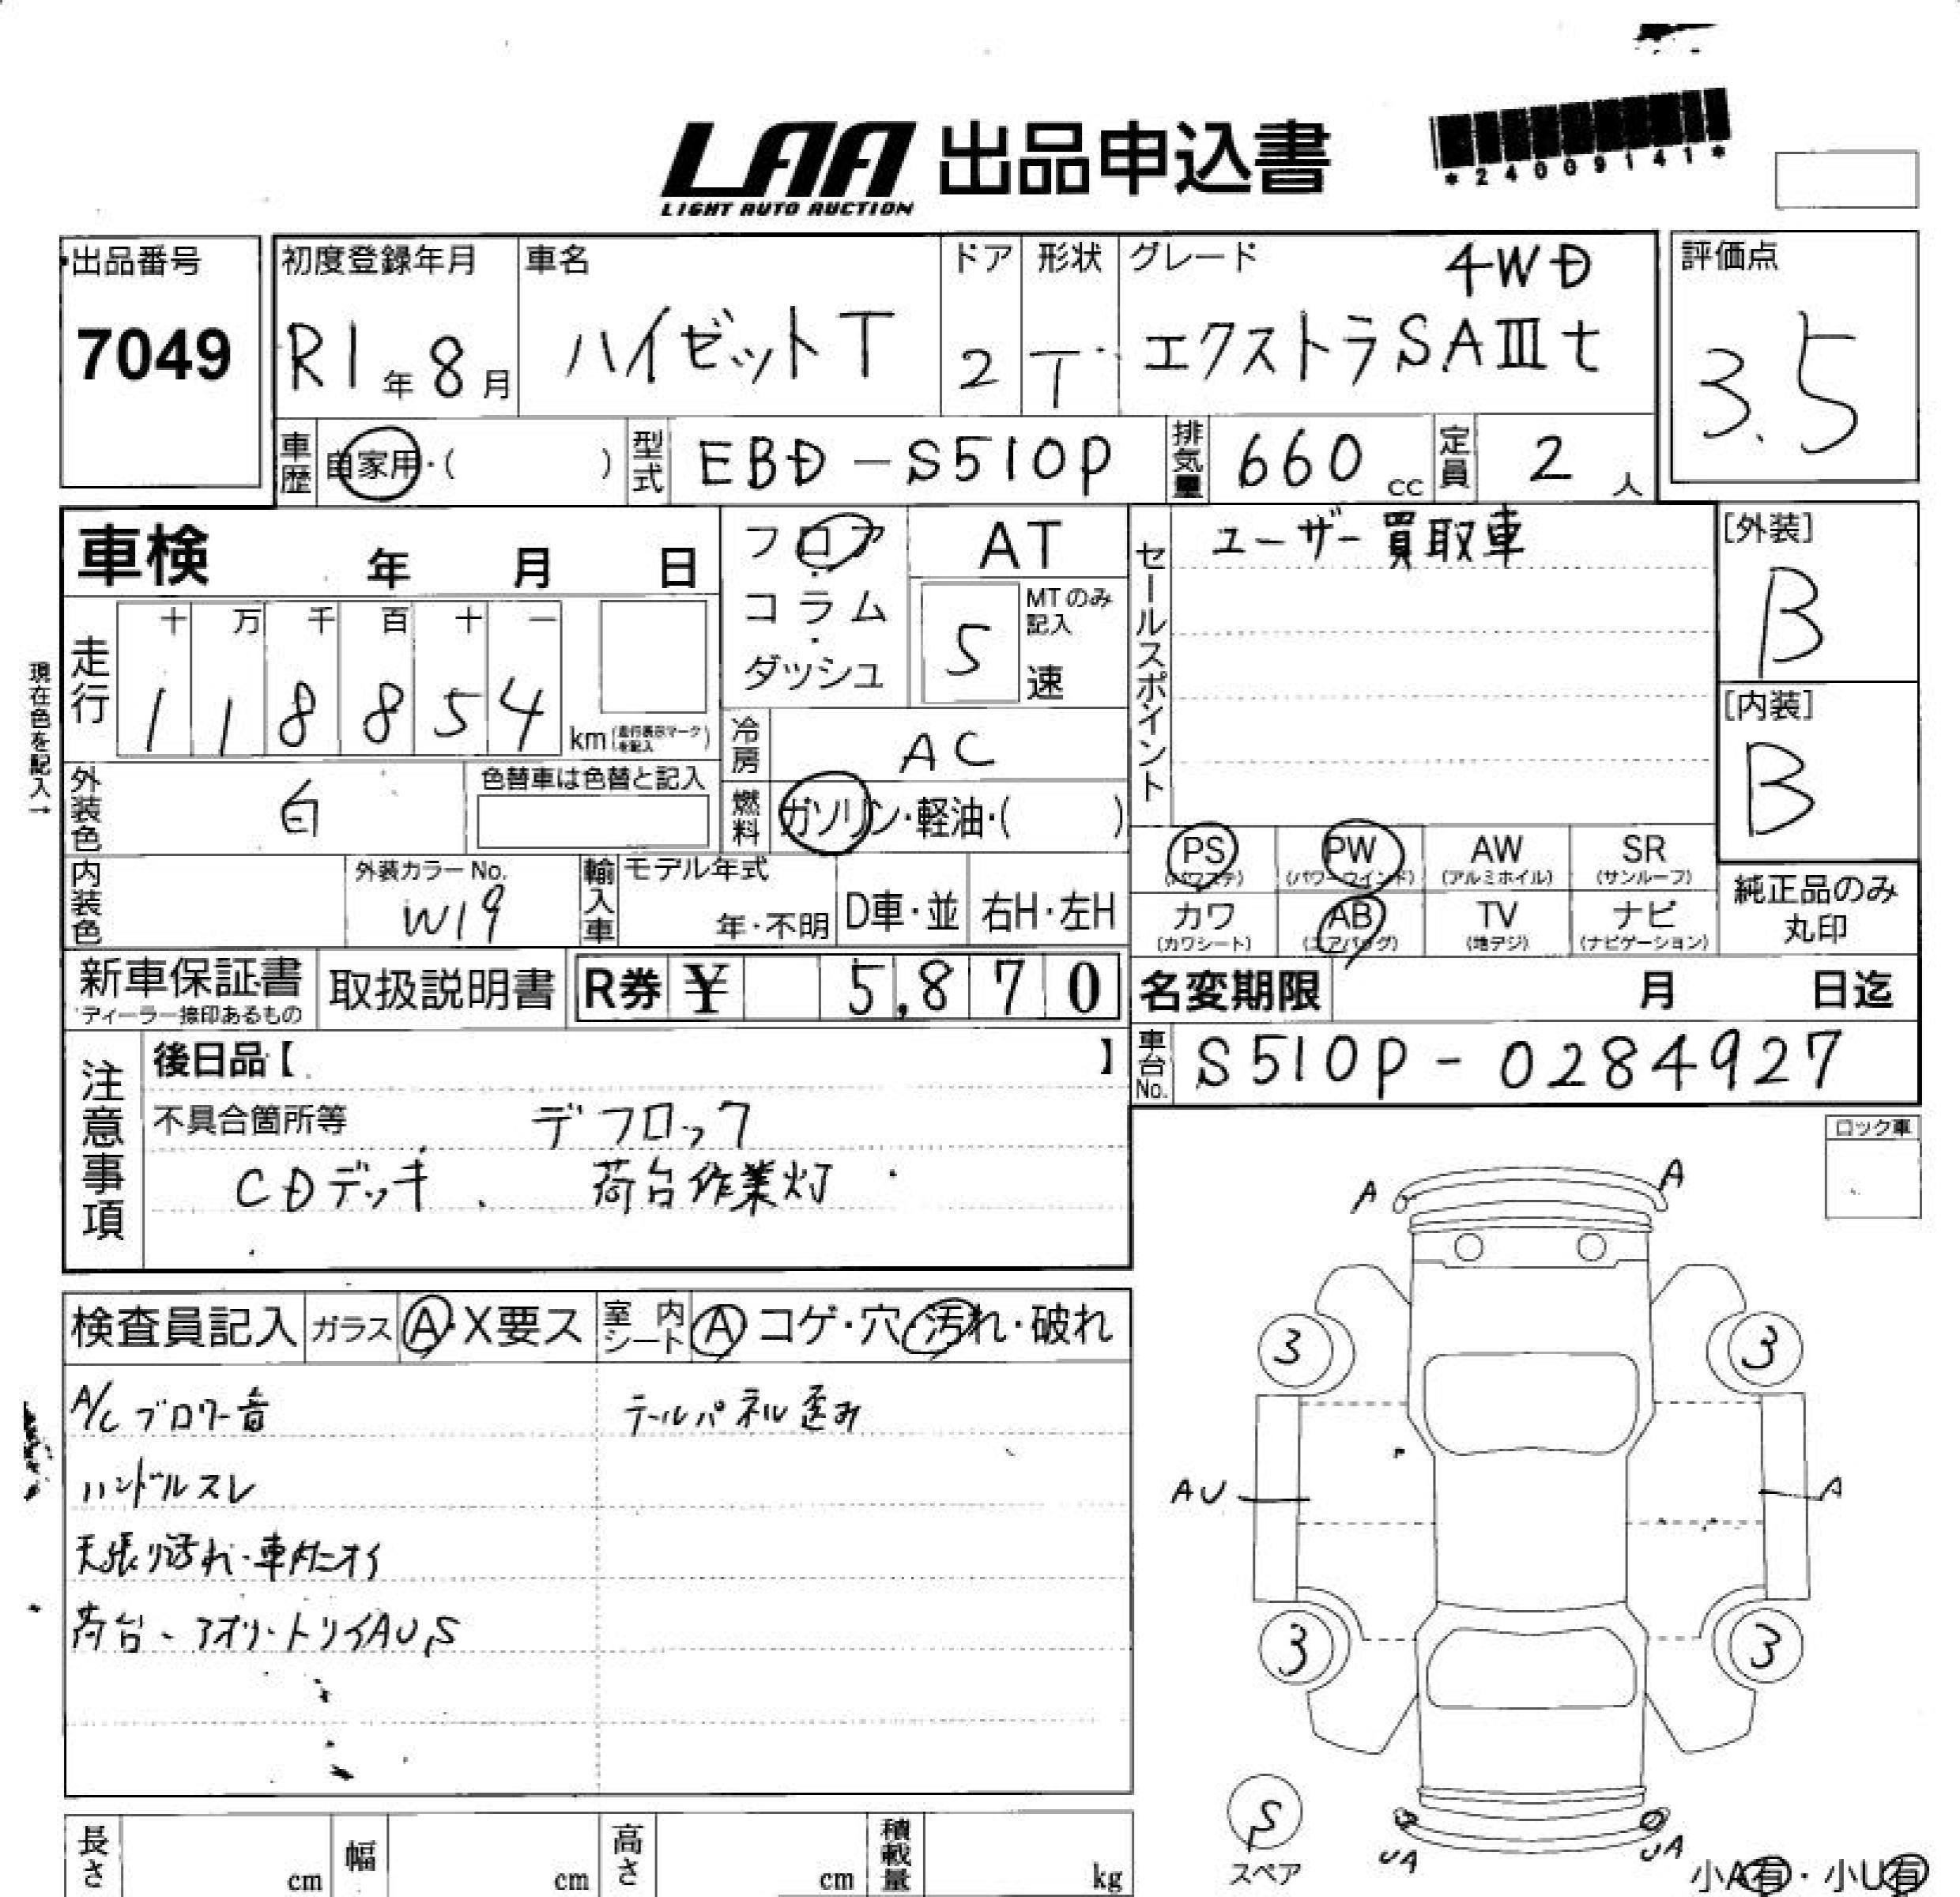 LAA 出品申込書
LIGHT AUTO AUCTION
*24009141*
出品番号
7049
初度登録年月
R1年8月
車名
ハイゼットT
ドア
2
形状
T
グレード
4WD
エクストラSAⅢt
評価点
3.5
車歴 自家用・( )
型式 EBD-S510P
排気量 660 cc
定員 2 人
車検 年 月 日
フロア・コラム・ダッシュ
AT
5
MTのみ記入
速
セールスポイント
ユーザー買取車
[外装]
B
[内装]
B
現在色を記入→
走行
十 万 千 百 十 一
1 1 8 8 5 4
km(走行表示マークを記入)
冷房 AC
外装色 白
色替車は色替と記入
燃料 ガソリン・軽油・( )
内装色
外装カラーNo.
W19
輸入車
モデル年式
年・不明
D車・並
右H・左H
PS
(パワステ)
PW
(パワーウインド)
AW
(アルミホイル)
SR
(サンルーフ)
カワ
(カワシート)
AB
(エアバッグ)
TV
(地デジ)
ナビ
(ナビゲーション)
純正品のみ
丸印
新車保証書
ディーラー捺印あるもの
取扱説明書
R券 ¥ 5,870
名変期限 月 日迄
車台No. S510P-0284927
注意事項
後日品【 】
不具合箇所等 デフロック
CDデッキ、 荷台作業灯
ロック車
検査員記入
ガラス A・X要ス
室内シート A コゲ・穴・汚れ・破れ
A/Cブロワー音
テールパネル歪み
ハンドルスレ
天張り汚れ・車内ニオイ
荷台、アオリ・トリイAU,S
A
A
3
3
AU
A
3
3
S
スペア
UA
UA
小A有・小U有
長さ cm
幅 cm
高さ cm
積載量 kg